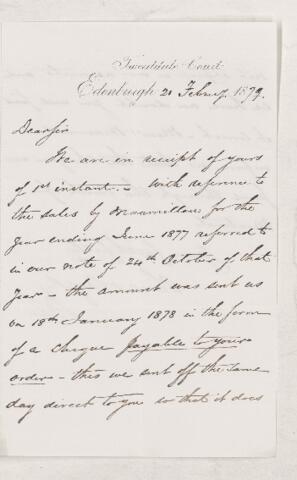 Court
Edinburgh 21 Febry. 1879.
Dear Sir
We are in receipt of yours
of 1st instant. With reference to
the sales by Macmillan for the
Year ending June 1877 referred to
in our note of 24th October of that
Year – the amount was sent us
on 18th January 1878 in the form
of a cheque payable to your
order – this we sent off the same
day direct to you so that it does